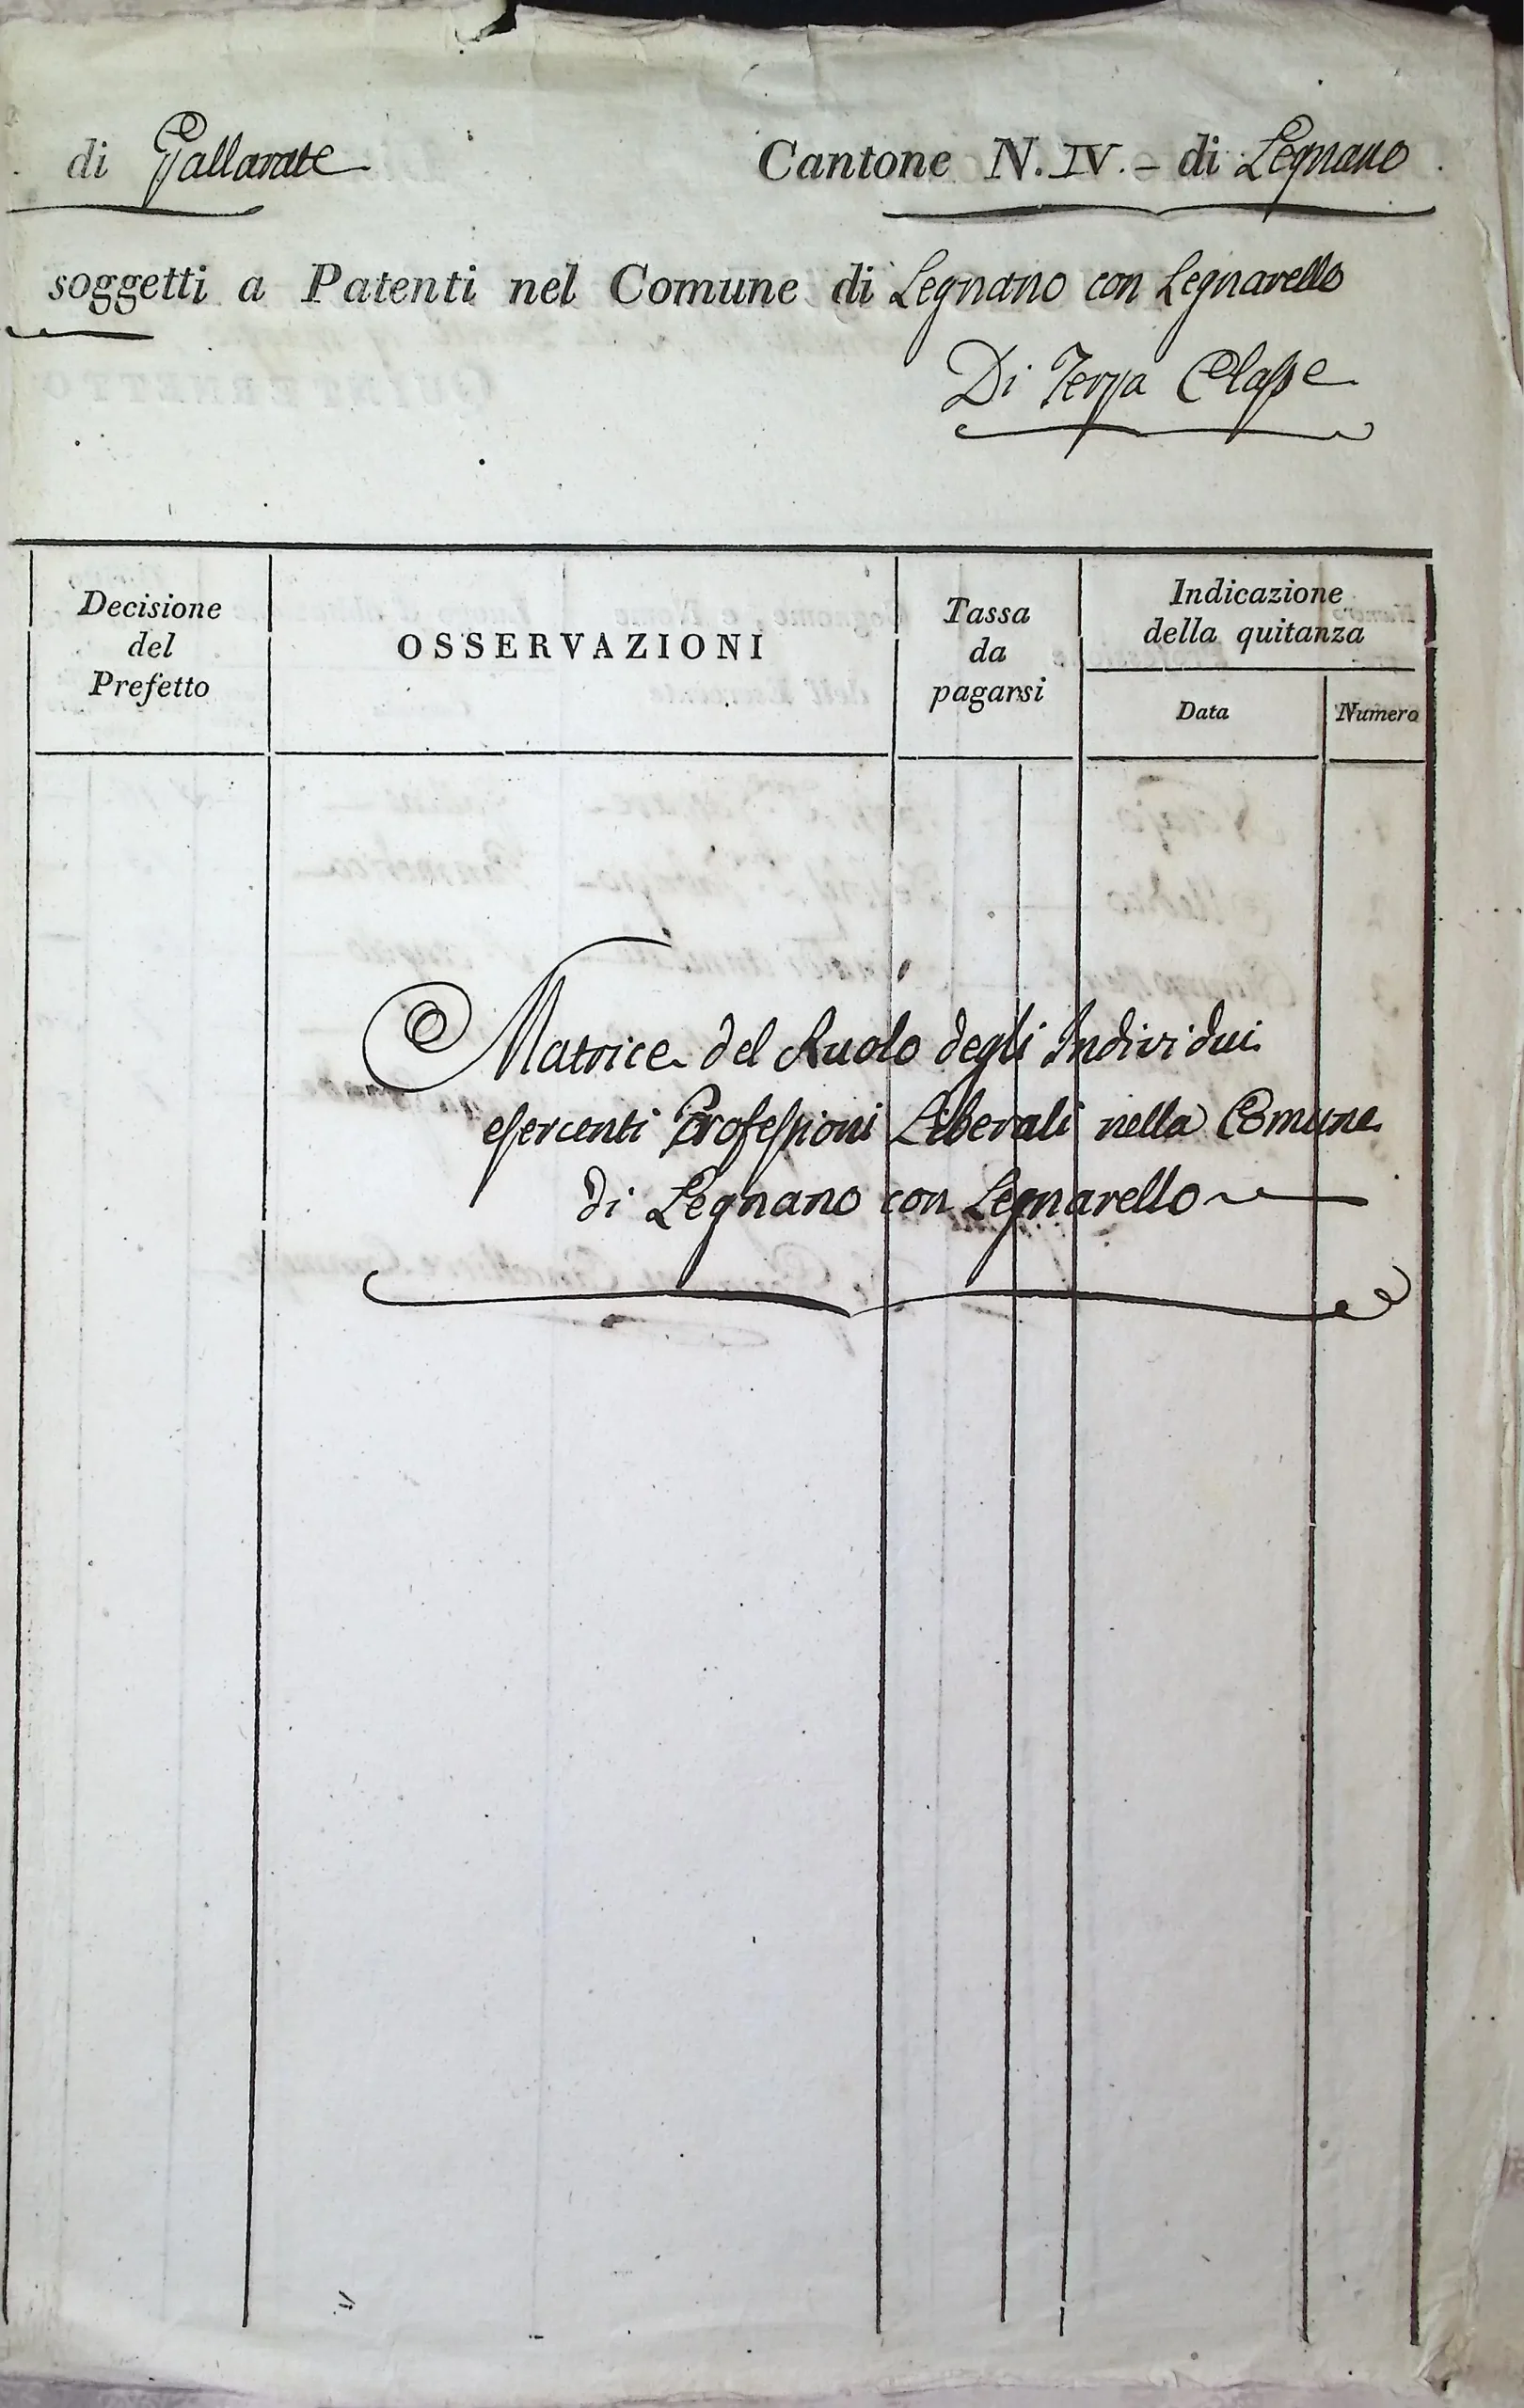 di Gallarate Cantone N. IV. - di Legnano
soggetti a Patenti nel Comune di Legnano con Legnarello
Di Terza Classe
Decisione
del
Prefetto
OSSERVAZIONI
Tassa
da
pagarsi
Indicazione
della quitanza
Data
Numero
Matrice del Ruolo degli Individui
esercenti Professioni Liberali nella Comune
di Legnano con Legnarello